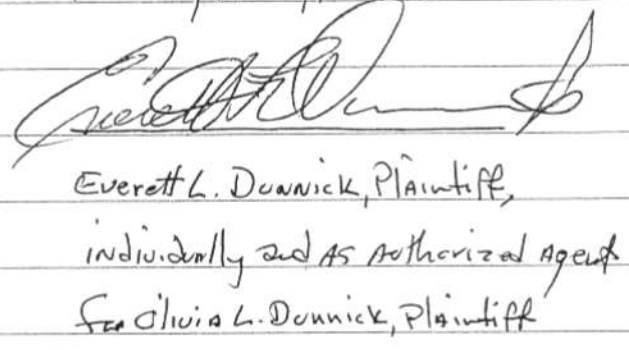 Everett L. Dunnick
Everett L. Dunnick, Plaintiff,
individually and as Authorized Agent
for Olivia L. Dunnick, Plaintiff